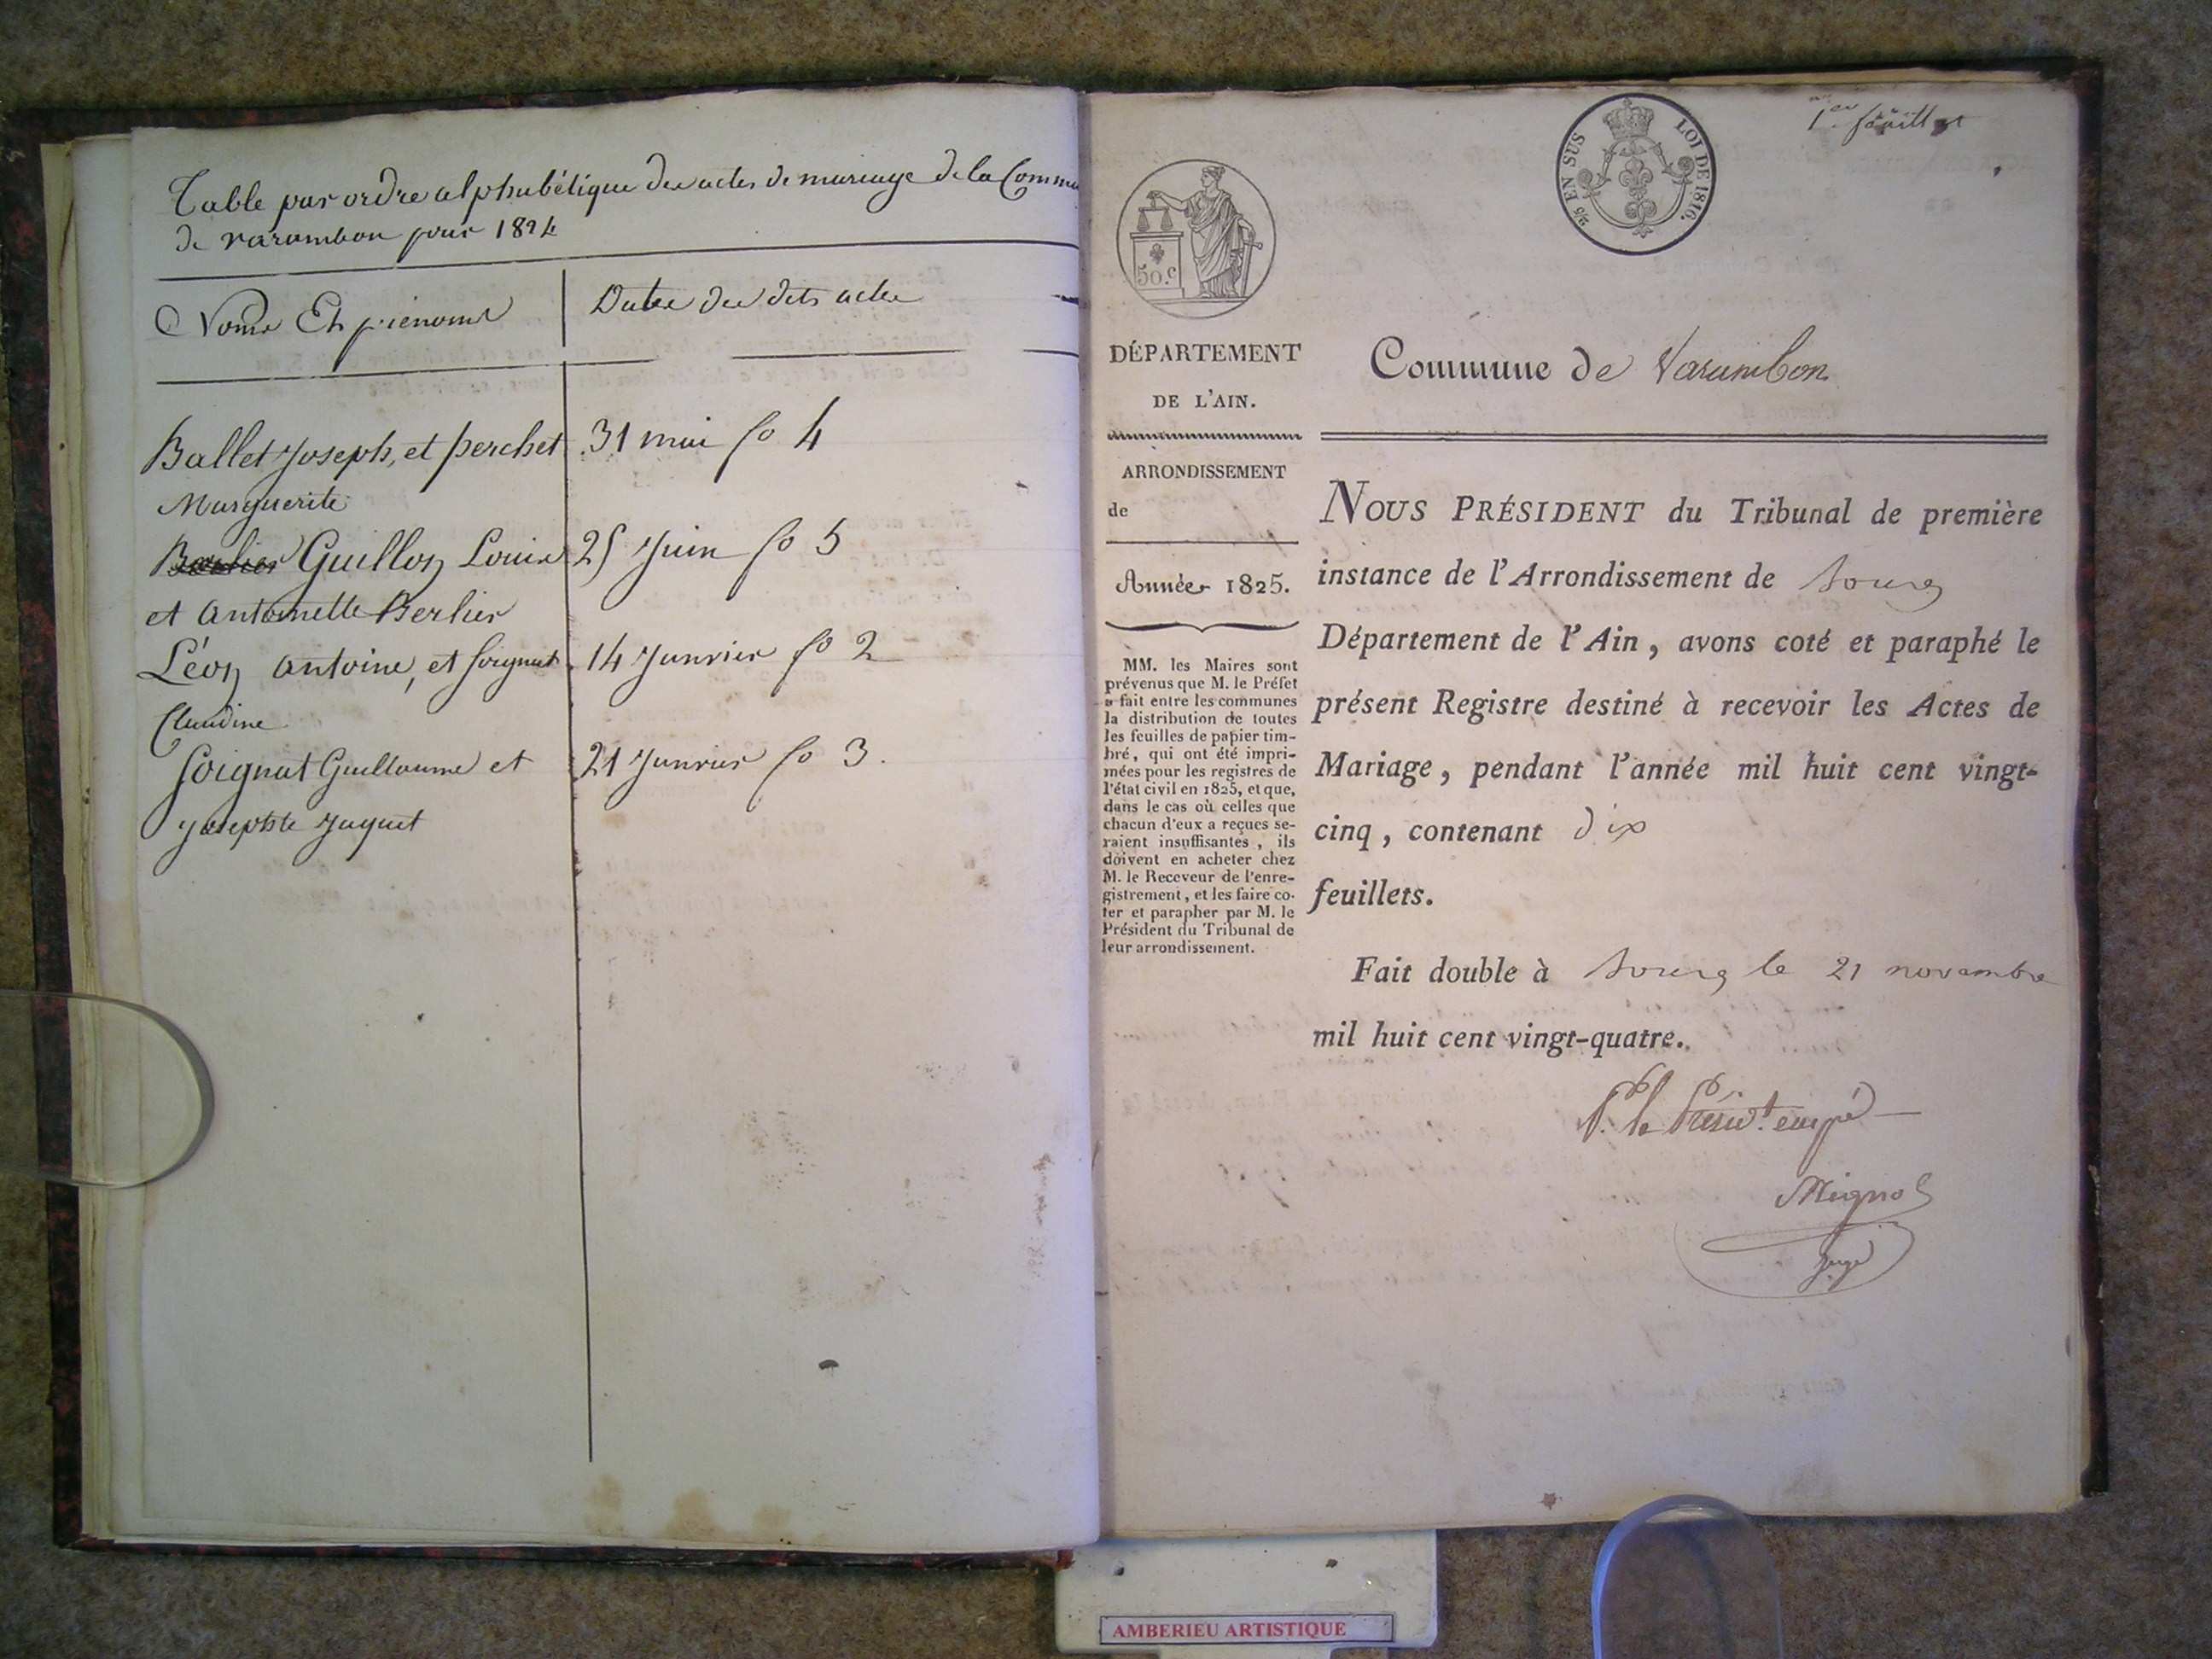 Table par ordre alphabétique des actes de mariage de la Commu
de varambon pour 1824
Noms Et prénoms
Dates des dits actes
Ballet Joseph, et perchet
31 mai fo 4
Marguerite
Guillon Louis
25 Juin fo 5
et Antoinette Berlier
Léon antoine, et Soignat
14 Janvier fo 2
Claudine
Soignat Guillaume et
21 Janvier fo 3.
Josephte Jaquet
1er feuillet
2/5 EN SUS
LOI DE 1816.
50.c
DÉPARTEMENT
DE L'AIN.
Commune de Varambon
ARRONDISSEMENT
de
Année 1825.
MM. les Maires sont
prévenus que M. le Préfet
a fait entre les communes
la distribution de toutes
les feuilles de papier tim-
bré, qui ont été impri-
mées pour les registres de
l'état civil en 1825, et que,
dans le cas où celles que
chacun d'eux a reçues se-
raient insuffisantes, ils
doivent en acheter chez
M. le Receveur de l'enre-
gistrement, et les faire co-
ter et parapher par M. le
Président du Tribunal de
leur arrondissement.
NOUS PRÉSIDENT du Tribunal de première
instance de l'Arrondissement de bourg
Département de l'Ain, avons coté et paraphé le
présent Registre destiné à recevoir les Actes de
Mariage, pendant l'année mil huit cent vingt-
cinq, contenant dix
feuillets.
Fait double à bourg le 21 novembre
mil huit cent vingt-quatre.
P. le Présidt. empé
Juge
AMBERIEU ARTISTIQUE